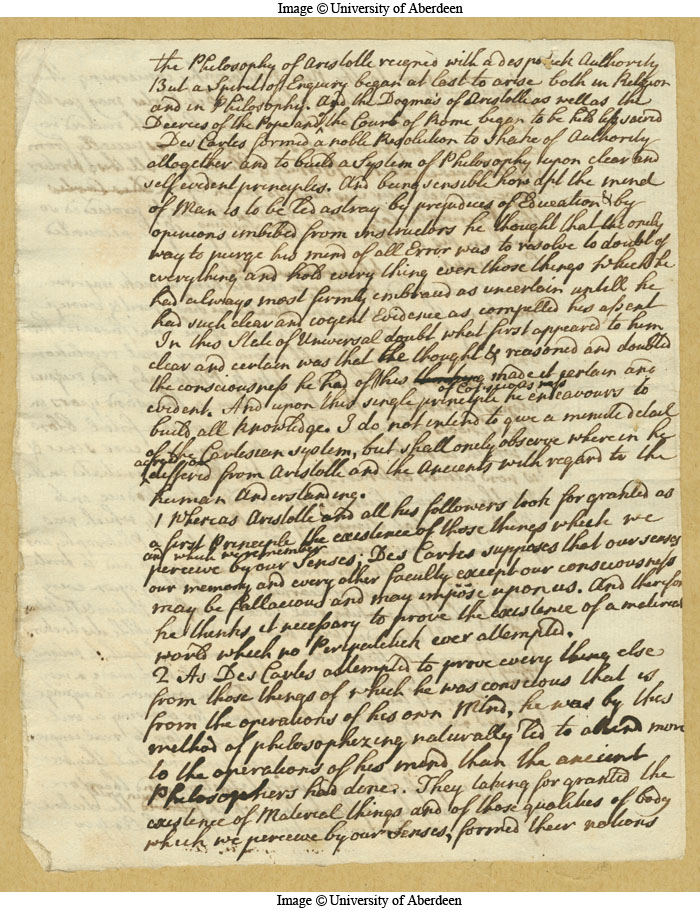 Image © University of Aberdeen
the Philosophy of Aristotle reigned with a despotick Authority
But a Spirit of Enquiry began at last to arise both in Religion
and in Philosophy. And the Dogmas of Aristotle as well as the
Decrees of the Pope and of the Court of Rome began to be held less sacred
Des Cartes formed a noble Resolution to Shake of Authority
altogether and to build a System of Philosophy upon clear and
self evident principles. And being sensible how apt the mind
of Man is to be led astray by prejudices of Education & by
opinions imbibed from instructors he thought that the onely
way to purge his mind of all Error was to resolve to doubt of
everything and hold every thing even those things which he
had always most firmly embraced as uncertain untill he
had such clear and cogent Evidence as compelled his assent
In this State of Universal doubt what first appeared to him
clear and certain was that he thought & reasoned and doubted
the consciousness he had of this made it certain and
of Consciousness
evident. And upon this single principle he endeavours to
build all knowledge. I do not intend to give a minute detail
of the Cartesian System, but shall onely observe where in he
differed from Aristotle and the Ancients with regard to the
human Understanding.
1 Whereas Aristotle and all his followers took for granted as
a first Principle the existence of those things which we
and which we remember
perceive by our Senses; Des Cartes supposes that our senses
our memory and every other faculty except our consciousness
may be fallacious and may impose upon us. And therefore
he thinks it necessary to prove the existence of a material
world which no Peripatetick ever attempted.
2 As Des Cartes attempted to prove every thing else
from those things of which he was conscious that is
from the operations of his own Mind, he was by this
method of philosophizing naturally led to attend more
to the operations of his mind than the ancient
Philosophers had done. They taking for granted the
existence of Material things and of those qualities of body
which we perceive by our Senses, formed their notions
Image © University of Aberdeen